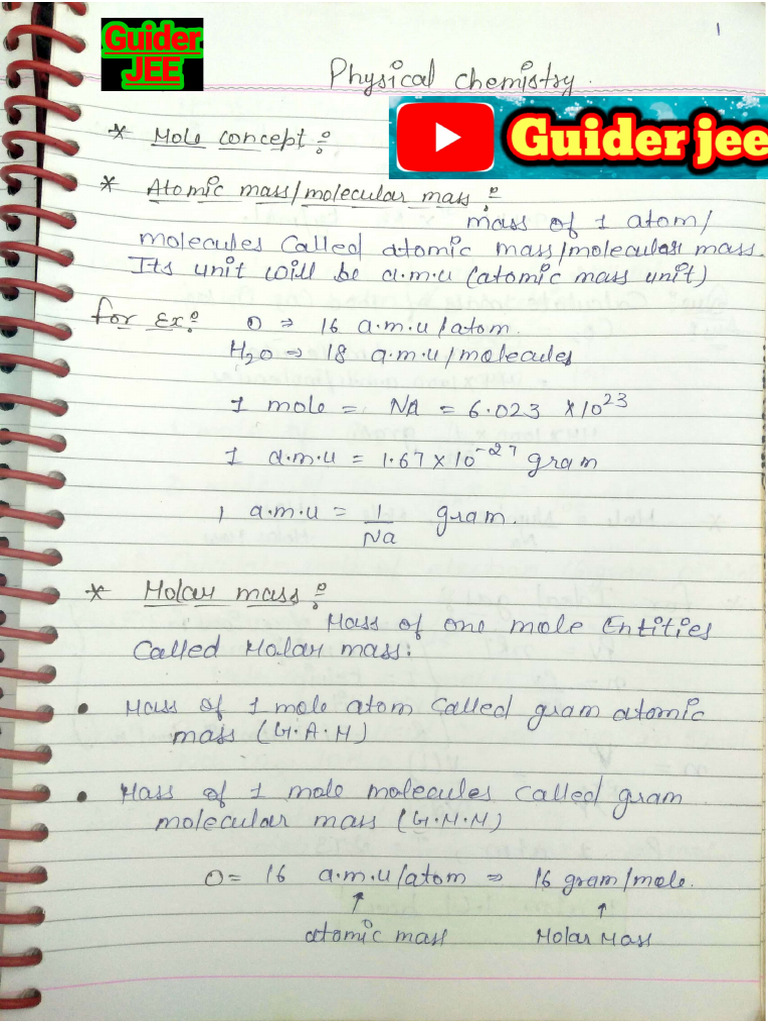 Guider
JEE
1
Physical chemistry.
Guider jee
* Mole concept :
* Atomic mass/molecular mass :
mass of 1 atom/
molecules called atomic mass/molecular mass.
Its unit will be a.m.u (atomic mass unit)
for Ex: O ⇒ 16 a.m.u/atom.
H₂O ⇒ 18 a.m.u/molecules
1 mole = NA = 6.023 × 10²³
1 a.m.u = 1.67 × 10⁻²⁷ gram
1 a.m.u = 1/Na gram.
* Molar mass :
Mass of one mole Entities
called Molar mass:
• Mass of 1 mole atom called gram atomic
mass (G.A.M)
• Mass of 1 mole molecules called gram
molecular mass (G.M.M)
O = 16 a.m.u/atom ⇒ 16 gram/mole.
↑ ↑
atomic mass Molar Mass